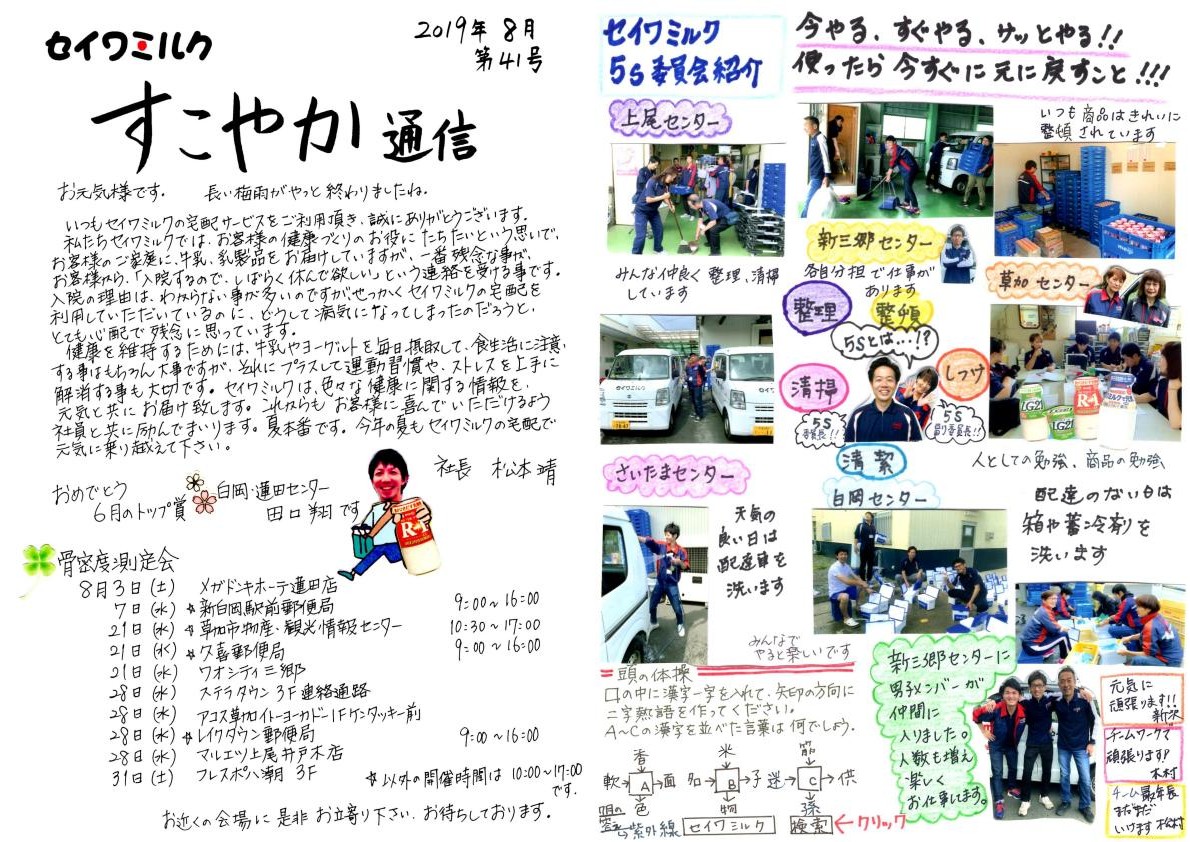 セイワミルク
2019年 8月
第41号
すこやか 通信
お元気様です。 長い梅雨がやっと終わりましたね。
いつもセイワミルクの宅配サービスをご利用頂き、誠にありがとうございます。
私たちセイワミルクでは、お客様の健康づくりのお役にたちたいという思いで、
お客様のご家庭に、牛乳、乳製品をお届けしていますが、一番残念な事が、
お客様から、「入院するので、しばらく休んで欲しい」という連絡を受ける事です。
入院の理由は、わからない事が多いのですがせっかくセイワミルクの宅配を
利用していただいているのに、どうして病気になってしまったのだろうと、
とても心配で残念に思っています。
健康を維持するためには、牛乳やヨーグルトを毎日摂取して、食生活に注意
する事はもちろん大事ですが、それにプラスして運動習慣や、ストレスを上手に
解消する事も大切です。セイワミルクは、色々な健康に関する情報を、
元気と共にお届け致します。これからもお客様に喜んでいただけるよう
社員と共に励んでまいります。夏本番です。今年の夏もセイワミルクの宅配で
元気に乗り越えて下さい。
社長 松本 靖
おめでとう
6月のトップ賞
白岡・蓮田センター
田口 翔です
R-1
骨密度測定会
8月3日(土) メガドンキホーテ蓮田店
7日(水) ☆新白岡駅前郵便局 9:00~16:00
21日(水) ☆草加市物産・観光情報センター 10:30~17:00
21日(水) ☆久喜郵便局 9:00~16:00
21日(水) ワオシティ三郷
28日(水) ステラタウン 3F連絡通路
28日(水) アコス草加イトーヨーカドー1Fケンタッキー前
28日(水) ☆レイクタウン郵便局 9:00~16:00
28日(水) マルエツ上尾井戸木店
31日(土) フレスポ八潮 3F
☆以外の開催時間は 10:00~17:00
です。
お近くの会場に是非お立寄り下さい。お待ちしております。
セイワミルク
5S委員会紹介
今やる、すぐやる、サッとやる!!
使ったら今すぐに元に戻すこと!!!
上尾センター
いつも商品はきれいに
整頓されています
みんな仲良く整理、清掃
しています
新三郷センター
各自分担で仕事が
あります
草加センター
整理
整頓
5Sとは…!?
清掃
しつけ
5S
委員長!!
5S
副委員長!!
清潔
セイワミルク
LG21
R-1
LG21
人としての勉強、商品の勉強
さいたまセンター
天気の
良い日は
配達車を
洗います
白岡センター
配達のない日は
箱や蓄冷剤を
洗います
みんなで
やると楽しいです
頭の体操
□の中に漢字一字を入れて、矢印の方向に
二字熟語を作ってください。
A~Cの漢字を並べた言葉は何でしょう。
香 米 筋
軟 A 面 勾 B 子 迷 C 供
色 物 孫
紫外線
セイワミルク
検索
←クリック
新三郷センターに
男子メンバーが
仲間に
入りました。
人数も増え
楽しく
お仕事します。
元気に
頑張ります!!
新沢
チームワークで
頑張ります!
木村
チーム最年長
まだまだ
いけます 松村